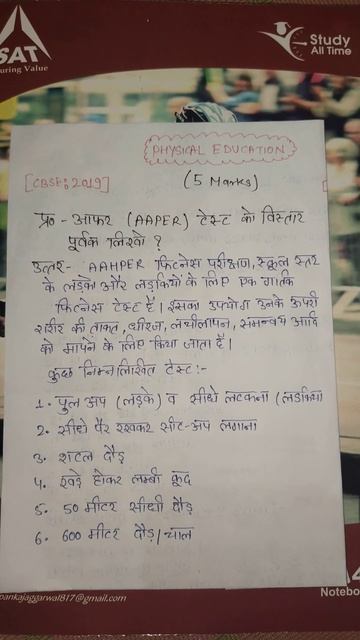 SAT
uring Value
Study
All Time
PHYSICAL EDUCATION
[CBSE: 2019]
(5 Marks)
प्र० - आफर (AAPER) टेस्ट को विस्तार
पूर्वक लिखो ?
उत्तर - AAHPER फिटनेस परीक्षण, स्कूल स्तर
के लड़को और लड़कियों के लिए एक गतिक
फिटनेस टेस्ट है। इसका उपयोग उनके ऊपरी
शरीर की ताकत, धीरज, लचीलापन, समन्वय आदि
को मापने के लिए किया जाता है।
कुछ निम्नलिखित टेस्ट :-
1. पुल अप (लड़के) व सीधे लटकना (लड़कियां
2. सीधे पैर रखकर सीट-अप लगाना
3. शटल दौड़
4. खड़े होकर लम्बी कूद
5. 50 मीटर सीधी दौड़
6. 600 मीटर दौड़/चाल
pankajaggarwal817@gmail.com
Notebo